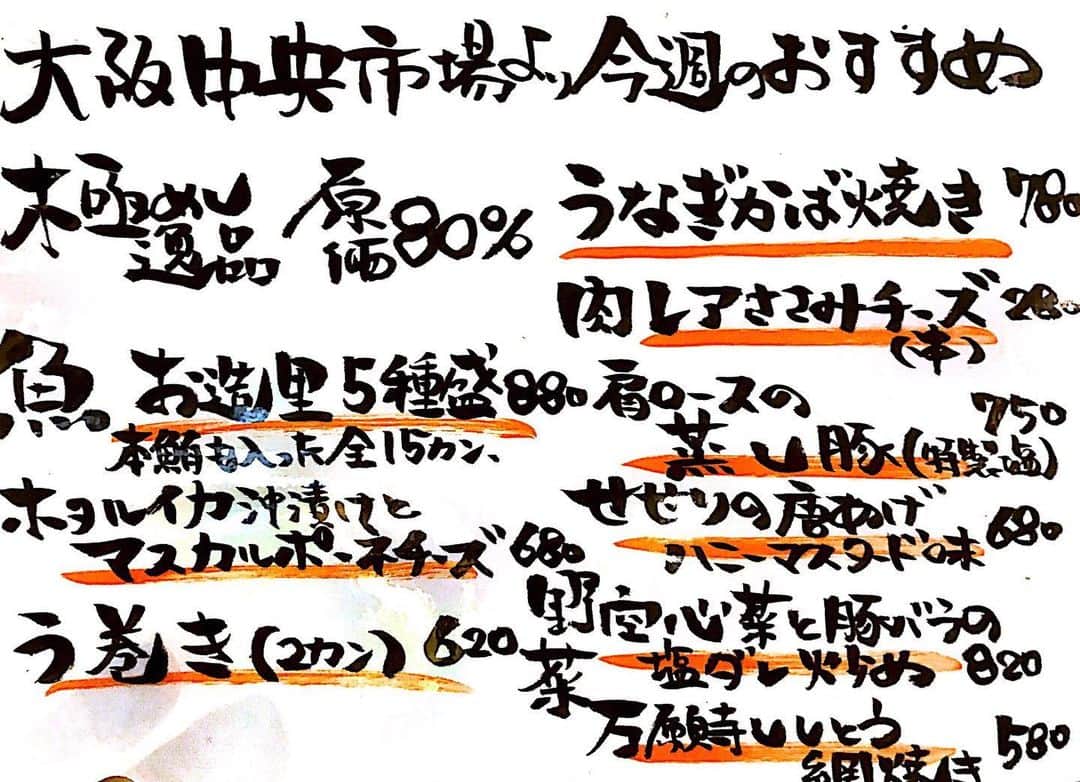 大阪中央市場より今週のおすすめ
極めし逸品 原価80%
魚
お造里5種盛 880
本鮪も入った全15カン、
ホタルイカ沖漬けと
マスカルポーネチーズ 680
う巻き(2カン) 620
うなぎかば焼き 780
肉 レアささみチーズ 280
(本)
肩ロースの
蒸し豚(特製塩) 750
せせりの唐あげ
ハニーマスタード味 680
野菜
空心菜と豚バラの
塩ダレ炒め 820
万願寺ししとう
網焼き 580